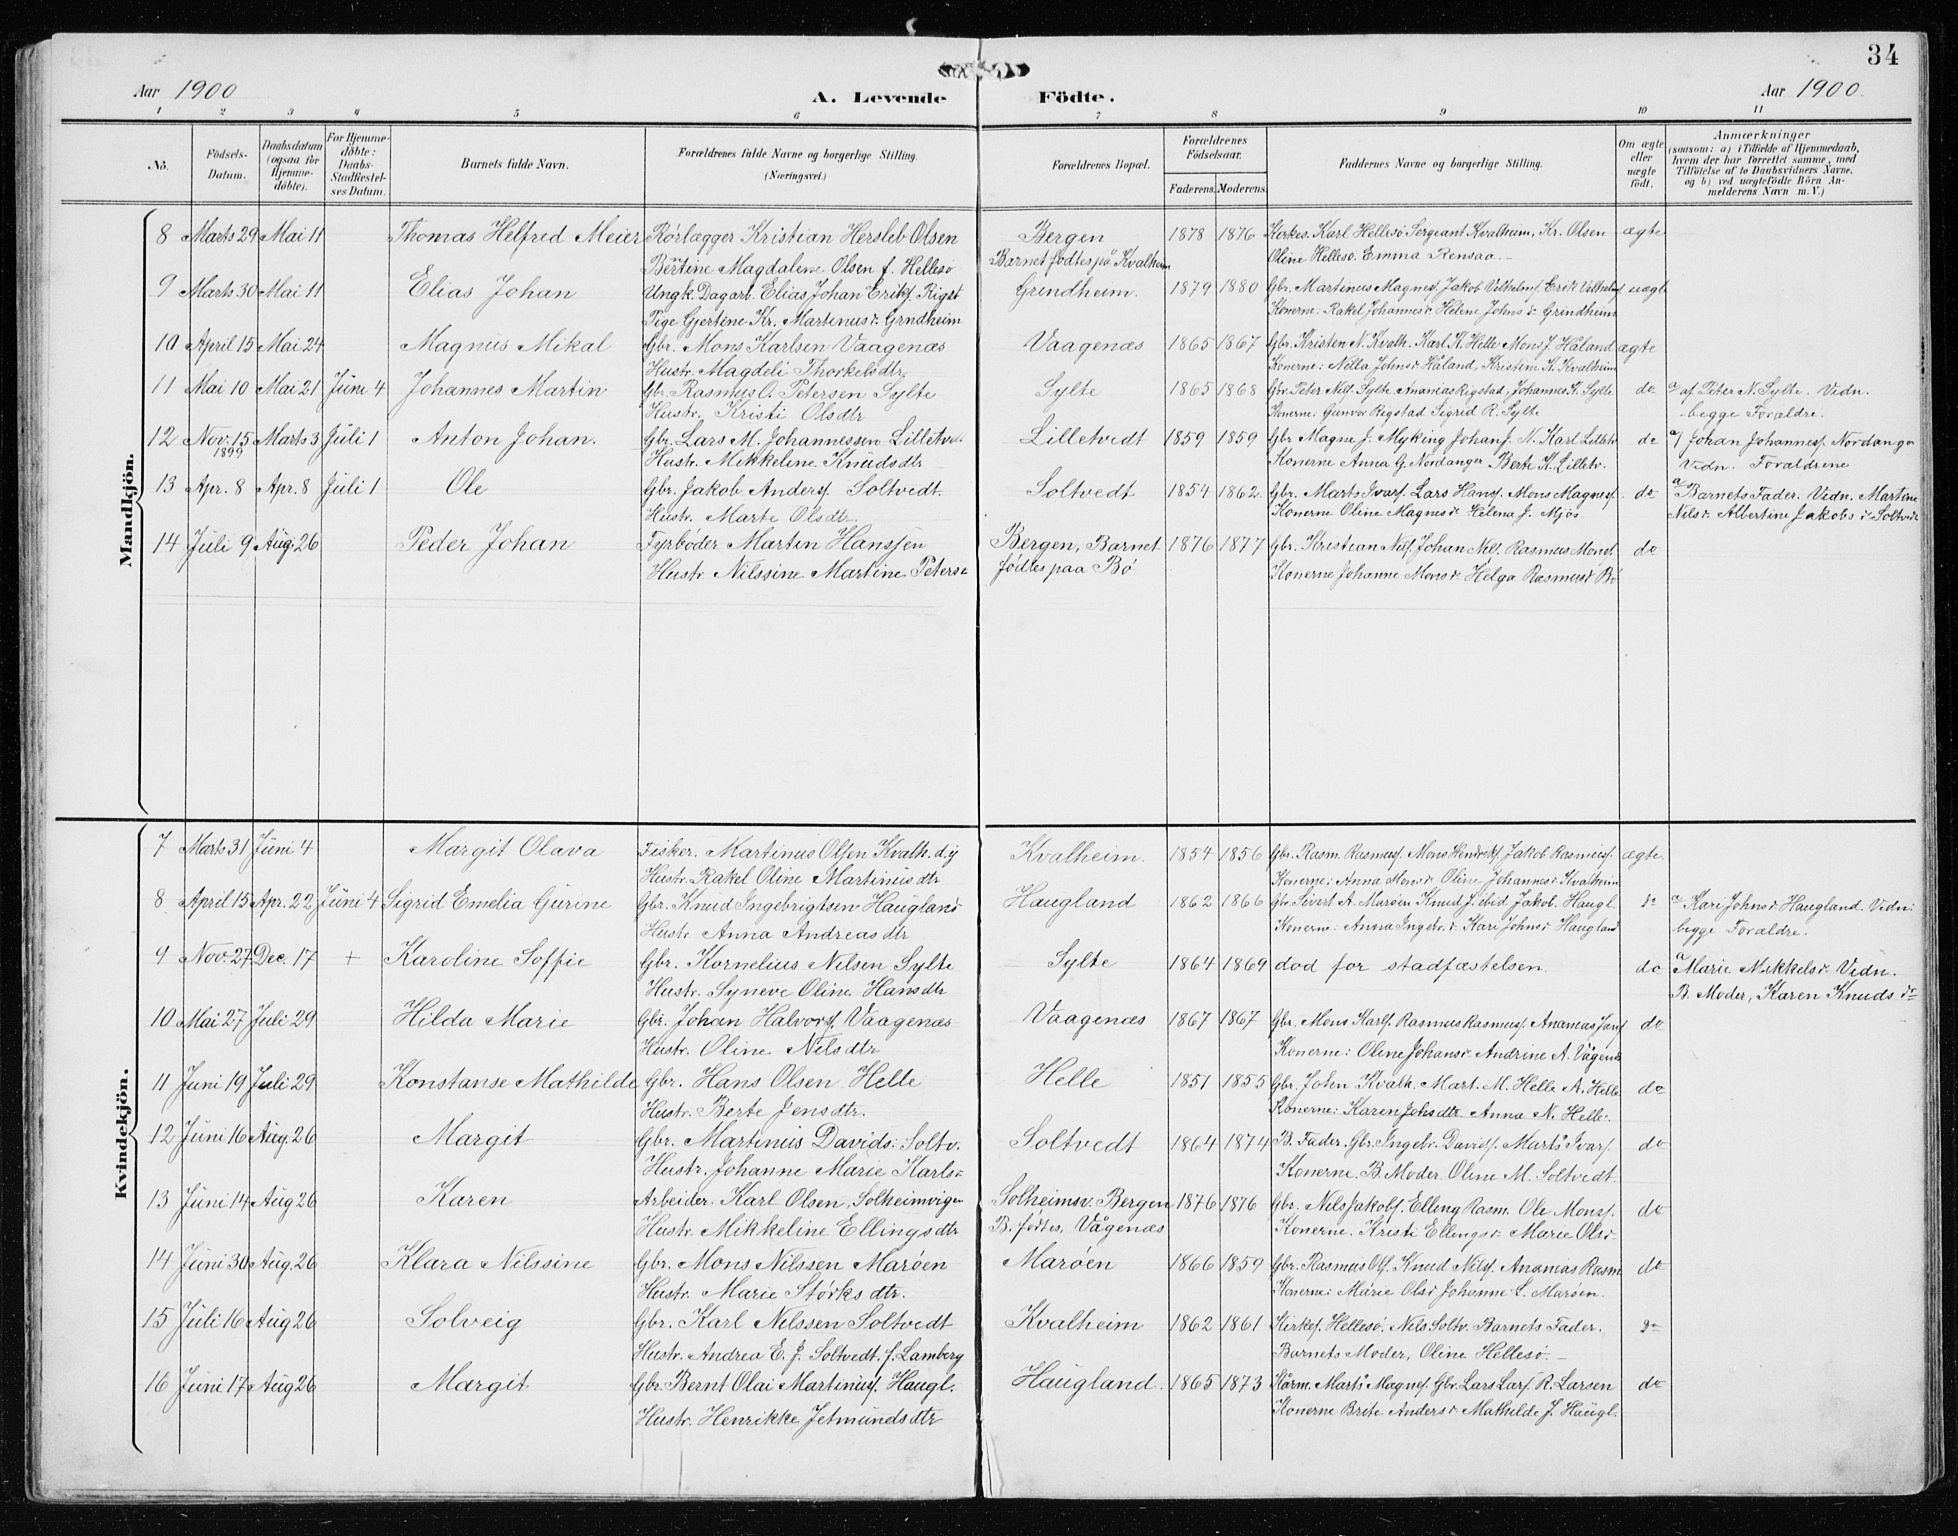 34
Aar 1900 A. Levende Födte. Aar 1900
1 2 3 4 5 6 7 8 9 10 11
No. Födsels-Datum. Daabsdatum (ogsaa for Hjemmedöbte). For Hjemmedöbte: Daabs-Stadfæstelses Datum. Barnets fulde Navn. Forældrenes fulde Navne og borgerlige Stilling. (Næringsvei.) Forældrenes Bopæl. Forældrenes Födselsaar. Faderens. Moderens. Faddernes Navne og borgerlige Stilling. Om ægte eller uægte födt. Anmærkninger (saasom: a) i Tilfælde af Hjemmedaab, hvem der har forrettet samme, med Tilföielse af to Daabsvidners Navne, og b) ved uægtefödte Börn Anmelderens Navn m. V.)
Mandkjön.
8 Marts 29 Mai 11 Thomas Helfred Meier Rörlægger Kristian Hersleb Olsen Bergen 1878 1876 Kirkes. Karl Hellesö Sergeant Kvalheim, Kr. Olsen ægte
Bertine Magdalene Olsen f. Hellesö Barnet födtes på Kvalheim Oline Hellesö. Emma Rensaa.
9 Marts 30 Mai 11 Elias Johan Ungk. Dagarb. Elias Johan Eriks. Rigst Grindheim. 1879 1880 Gbr. Martinus Magnes. Jakob Vilhelms. Erik Vilhelms uægte
Pige Gjertine Kr. Martinus dr. Grndheim Konerne: Rakel Johannes dr Helene Johns dr Grindheim
10 April 15 Mai 24 Magnus Mikal Gbr. Mons Karlsen Vaagenæs Vaagenæs 1865 1867 Gbr. Kristen N. Kvalh. Karl K. Helle Mons J. Håland ægte
Hustr. Magdeli Thorkelsdtr Konerne: Nella Johns dr Håland, Kristine K. Kvalheim
11 Mai 10 Mai 21 Juni 4 Johannes Martin Gbr. Rasmus O. Petersen Sylte Sylte 1865 1868 Gbr. Peter Nils. Sylte Ananias Rigstad, Johannes K. Sylte do a/ af Peter N. Sylte. Vidn.
Hustr. Kristi Olsdtr Konerne: Gunvor Rigstad Sigrid R. Sylte begge Foraldre.
12 Nov. 15 1899 Marts 3 Juli 1 Anton Johan. Gbr. Lars M. Johannessen Lilletv. Lilletvedt 1859 1859 Gbr Magne J. Myking Johan J. N. Karl Lilletv do a/ Johan Johanness. Nordanger
Hustr. Mikkeline Knudsdtr Konerne Anna G. Nordanger Berte K. Lilletv. Vidn. Foraldrene
13 Apr. 8 Apr. 8 Juli 1 Ole Gbr. Jakob Anders. Soltvedt. Soltvedt 1854 1862 Gbr. Marts Ivars. Lars Hans. Mons Magnes. do a/ Barnets Fader. Vidn. Martine
Hustr. Marte Olsdtr Konerne Oline Magnes dr Helena J. Mjös Nils dr Albertine Jakobs dr Soltvedt
14 Juli 9 Aug. 26 Peder Johan Fyrböder Martin Hansjen Bergen, Barnet 1876 1877 Gbr. Kristian Nils. Johan Nils. Rasmus Mons. do
Hustr Nilssine Martine Peters dr födtes paa Bö Konerne Johanne Mons dr Helga Rasmus dr Bö
Kvindekjön.
7 Marts 31 Juni 4 Margit Olava Fisker. Martinus Olsen Kvalh. d.y Kvalheim. 1854 1856 Gbr. Rasm. Rasmuss. Mons Hendriks Jakob Rasmuss. ægte
Hustr. Rakel Oline Martinusdtr Konerne: Anna Mons dr Oline Johannes dr Kvalheim
8 April 15 Apr. 22 Juni 4 Sigrid Emelia Gurine Gbr. Knud Ingebrigtsen Haugland Haugland 1862 1866 Gbr. Sivert A. Maröen Knud J. ibid Jakob. Haugl. do a/ Kari Johns dr Haugland. Vidn:
Hustr. Anna Andreasdtr Konerne: Anna Ingebr. dr Kari Johns dr Haugland begge Foraldre.
9 Nov. 27 Dec. 17 + Karoline Soffie Gbr. Kornelius Nilsen Sylte Sylte 1864 1869 död for stadfæstelsen do a/ Marie Mikkels dr Vidn.
Hustr. Syneve Oline Hansdtr B. Moder, Karen Knuds dr
10 Mai 27 Juli 29 Hilda Marie Gbr. Johan Halvors. Vaagenæs Vaagenæs 1867 1867 Gbr. Mons Karls. Rasmus Rasmuss. Ananias Jans do
Hustr. Oline Nilsdtr Konerne: Oline Johans dr Andrine A. Vågenes
11 Juni 19 Juli 29 Konstanse Mathilde Gbr. Hans Olsen Helle Helle 1851 1855 Gbr. John Kvalh. Mart. M. Helle A. Helle do
Hustr. Berte Jensdtr. Konerne: Karen Johsdtr Anna N. Helle.
12 Juni 16 Aug. 26 Margit Gbr. Martinus Davids. Soltv. Soltvedt 1864 1874 B. Fader. Gbr. Ingebr. Davids. Marts Ivars. do
Hustr. Johanne Marie Karls dr Konerne. B. Moder Oline M. Soltvedt
13 Juni 14 Aug 26 Karen Arbeider. Karl Olsen, Solheimvigen Solheimsv. Bergen 1876 1876 Gbr. Nils Jakobs. Elling Rasm. Ole Monss. do
Hustr. Mikkeline Ellingsdtr B. födtes, Vågenæs Konerne. Kristi Ellings dr Marie Ols dr
14 Juni 30 Aug. 26 Klara Nilssine Gbr. Mons Nilssen Maröen Maröen 1866 1859 Gbr. Rasmus Ols. Knud Nils. Ananias Rasm do
Hustr. Marie Störksdtr. Konerne: Marie Ols dr Johanne L. Maröen.
15 Juli 16 Aug 26 Solveig Gbr. Karl Nilssen Soltvedt Kvalheim 1862 1861 Kirkes. Hellesö. Nils Soltv. Barnets Fader. do
Hustr. Andrea E. J. Soltvedt f. Lamberg Barnets Moder, Oline Hellesö.
16 Juni 17 Aug 26 Margit Gbr. Bernt Olai Martinus. Haugl. Haugland. 1865 1873 Kårm. Marts Magnes. Gbr. Lars Lars. R. Larsen do
Hustr. Henrikke Jetmundsdtr Konerne Brite Anders dr Mathilde J. Haugl.